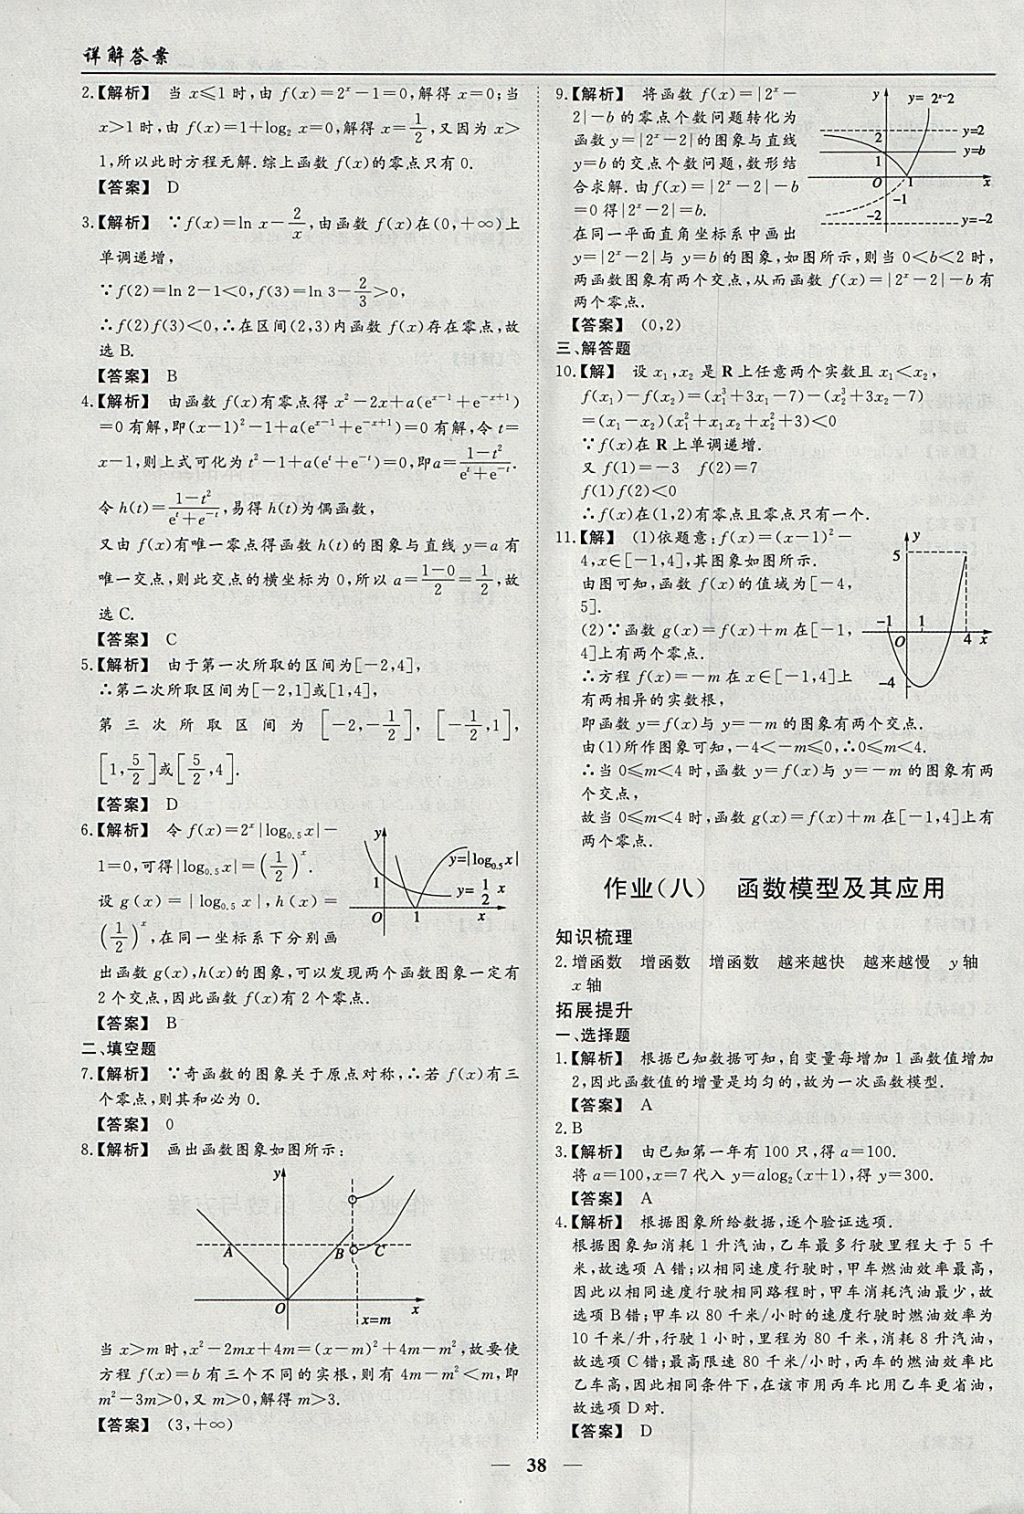 详解答案
2.【解析】 当 x⩽1 时,由 f(x)=2ˣ-1=0,解得 x=0;当
x>1 时,由 f(x)=1+log₂ x=0,解得 x=1/2,又因为 x>
1,所以此时方程无解.综上函数 f(x)的零点只有 0.
【答案】 D
3.【解析】 ∵f(x)=ln x-2/x,由函数 f(x)在(0,+∞)上
单调递增,
∵f(2)=ln 2-1<0,f(3)=ln 3-2/3>0,
∴f(2)f(3)<0,∴在区间(2,3)内函数 f(x)存在零点,故
选 B.
【答案】 B
4.【解析】 由函数 f(x)有零点得 x²-2x+a(e^{x-1}+e^{-x+1})
=0 有解,即(x-1)²-1+a(e^{x-1}+e^{-x+1})=0 有解,令 t=
x-1,则上式可化为 t²-1+a(e^t+e^{-t})=0,即a=(1-t²)/(e^t+e^{-t}).
令 h(t)=(1-t²)/(e^t+e^{-t}),易得 h(t)为偶函数,
又由 f(x)有唯一零点得函数 h(t)的图象与直线 y=a 有
唯一交点,则此交点的横坐标为 0,所以 a=(1-0)/2=1/2,故
选 C.
【答案】 C
5.【解析】 由于第一次所取的区间为[-2,4],
∴第二次所取区间为[-2,1]或[1,4],
第三次所取区间为[-2,-1/2],[-1/2,1],
[1,5/2]或[5/2,4].
【答案】 D
6.【解析】 令 f(x)=2ˣ|log₀.₅x|-
1=0,可得|log₀.₅x|=(1/2)ˣ.
设 g(x)=|log₀.₅x|,h(x)=
(1/2)ˣ,在同一坐标系下分别画
y
y=|log₀.₅x|
1
y=1/2 x
O 1 x
出函数 g(x),h(x)的图象,可以发现两个函数图象一定有
2 个交点,因此函数 f(x)有 2 个零点.
【答案】 B
二、填空题
7.【解析】 ∵奇函数的图象关于原点对称,∴若 f(x)有三
个零点,则其和必为 0.
【答案】 0
8.【解析】 画出函数图象如图所示:
y
A B C
O x
x=m
当 x>m 时,x²-2mx+4m=(x-m)²+4m-m²,故要使
方程 f(x)=b 有三个不同的实根,则有 4m-m²<m,即
m²-3m>0,又 m>0,解得 m>3.
【答案】 (3,+∞)
9.【解析】 将函数 f(x)=|2ˣ-
2|-b 的零点个数问题转化为
函数 y=|2ˣ-2|的图象与直线
y=b 的交点个数问题,数形结
合求解.由 f(x)=|2ˣ-2|-b
=0 得|2ˣ-2|=b.
在同一平面直角坐标系中画出
y
y=2ˣ-2
2
y=2
y=b
1
O 1 x
-1
-2
y=-2
y=|2ˣ-2|与 y=b 的图象,如图所示,则当 0<b<2 时,
两函数图象有两个交点,从而函数 f(x)=|2ˣ-2|-b 有
两个零点.
【答案】 (0,2)
三、解答题
10.【解】 设 x₁,x₂ 是 R 上任意两个实数且 x₁<x₂,
f(x₁)-f(x₂)=(x₁³+3x₁-7)-(x₂³+3x₂-7)
=(x₁-x₂)(x₁²+x₁x₂+x₂²+3)<0
∵f(x)在 R 上单调递增.
又 f(1)=-3 f(2)=7
f(1)f(2)<0
∴f(x)在(1,2)有零点且零点只有一个.
11.【解】 (1)依题意:f(x)=(x-1)²-
4,x∈[-1,4],其图象如图所示.
由图可知,函数 f(x)的值域为[-4,
5].
(2)∵函数 g(x)=f(x)+m 在[-1,
4]上有两个零点.
∴方程 f(x)=-m 在 x∈[-1,4]上
有两相异的实数根,
y
5
-1 1
O 4 x
-4
即函数 y=f(x)与 y=-m 的图象有两个交点.
由(1)所作图象可知,-4<-m⩽0,∴0⩽m<4.
∴当 0⩽m<4 时,函数 y=f(x)与 y=-m 的图象有两
个交点,
故当 0⩽m<4 时,函数 g(x)=f(x)+m 在[-1,4]上有
两个零点.
作业(八) 函数模型及其应用
知识梳理
2.增函数 增函数 增函数 越来越快 越来越慢 y 轴
x 轴
拓展提升
一、选择题
1.【解析】 根据已知数据可知,自变量每增加 1 函数值增加
2,因此函数值的增量是均匀的,故为一次函数模型.
【答案】 A
2.B
3.【解析】 由已知第一年有 100 只,得 a=100.
将 a=100,x=7 代入 y=alog₂(x+1),得 y=300.
【答案】 A
4.【解析】 根据图象所给数据,逐个验证选项.
根据图象知消耗 1 升汽油,乙车最多行驶里程大于 5 千
米,故选项 A 错;以相同速度行驶时,甲车燃油效率最高,
因此以相同速度行驶相同路程时,甲车消耗汽油最少,故
选项 B 错;甲车以 80 千米/小时的速度行驶时燃油效率为
10 千米/升,行驶 1 小时,里程为 80 千米,消耗 8 升汽油,
故选项 C 错;最高限速 80 千米/小时,丙车的燃油效率比
乙车高,因此相同条件下,在该市用丙车比用乙车更省油,
故选项 D 对.
【答案】 D
— 38 —